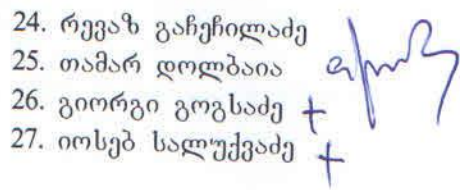 24. რევაზ გაჩეჩილაძე
25. თამარ დოლბაია
26. გიორგი გოგსაძე +
27. იოსებ სალუქვაძე +